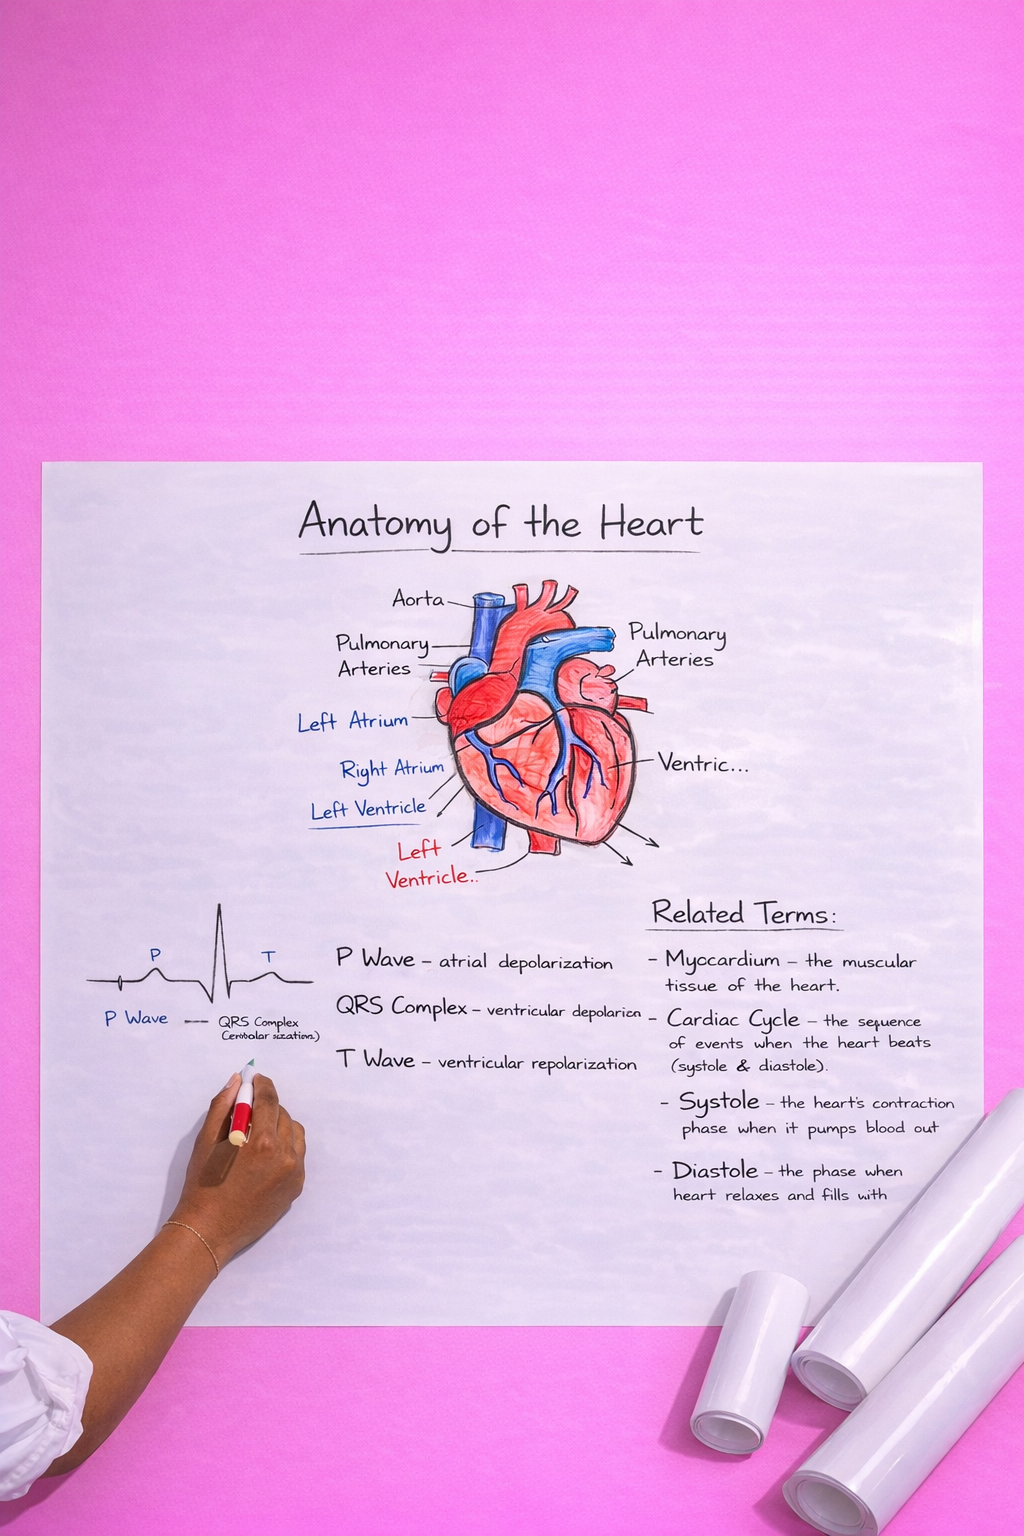 Anatomy of the Heart
Aorta
Pulmonary
Arteries
Pulmonary
Arteries
Left Atrium
Right Atrium
Left Ventricle
Ventric...
Left
Ventricle..
P
T
P Wave — QRS Complex
P Wave – atrial depolarization
QRS Complex – ventricular depolarien
T Wave – ventricular repolarization
Related Terms:
- Myocardium – the muscular
tissue of the heart.
- Cardiac Cycle – the sequence
of events when the heart beats
(systole & diastole).
- Systole – the heart's contraction
phase when it pumps blood out
- Diastole – the phase when
heart relaxes and fills with